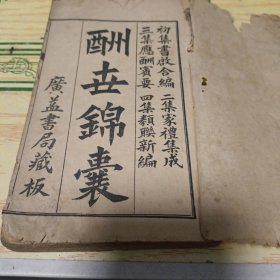 初集書啟合編 二集家禮集成
三集應酬賓要 四集類聯新編
酬世錦囊
廣益書局藏板